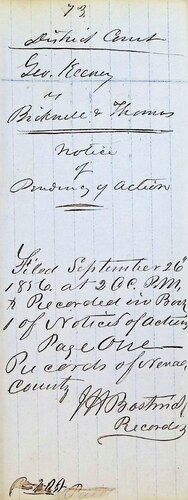 73.
District Court
Geo. Keeney
vs
Bicknell & Thomas
Notice
of
Pendency of Action
Filed September 26th
1856, at 2 O.C. P.M.
& Recorded in Book
1 of Notices of action
Page One
Records of Nevada
County
Bostwick
Recorder